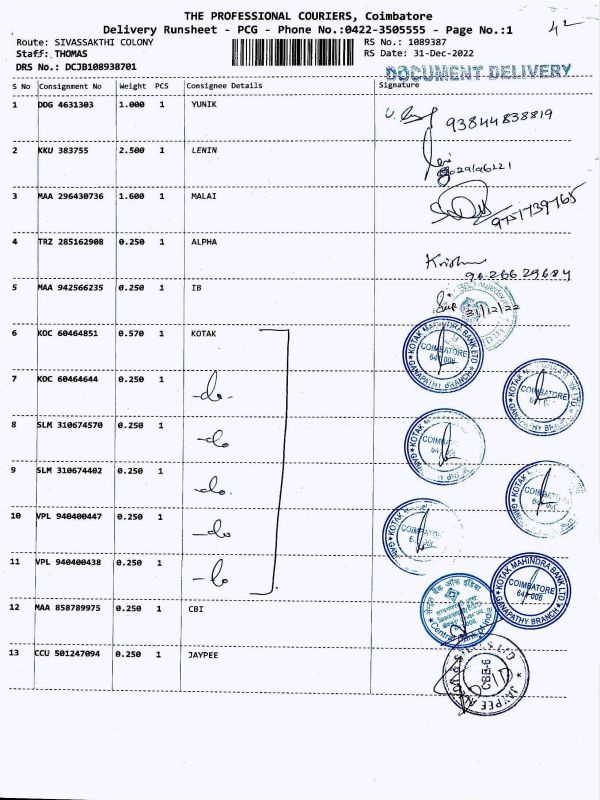 THE PROFESSIONAL COURIERS, Coimbatore
Delivery Runsheet - PCG - Phone No.:0422-3505555 - Page No.:1
Route: SIVASSAKTHI COLONY RS No.: 1089387
Staff: THOMAS RS Date: 31-Dec-2022
DRS No.: DCJB108938701
DOCUMENT DELIVERY
S No Consignment No Weight PCS Consignee Details Signature
1 DDG 4631303 1.000 1 YUNIK
93844838819
2 KKU 383755 2.500 1 LENIN
3 MAA 296430736 1.600 1 MALAI
9751739765
4 TRZ 285162908 0.250 1 ALPHA
Krishna
9626629684
5 MAA 942566235 0.250 1 IB
31/12/22
6 KOC 60464851 0.570 1 KOTAK
KOTAK MAHINDRA BANK LTD
COIMBATORE
641 006
GANAPATHY BRANCH
7 KOC 60464644 0.250 1 -do-
8 SLM 310674570 0.250 1 -do
9 SLM 310674402 0.250 1 -do.
10 VPL 940400447 0.250 1 -do
11 VPL 940400438 0.250 1 -do
KOTAK MAHINDRA BANK LTD
COIMBATORE
641 006
GANAPATHY BRANCH
12 MAA 858789975 0.250 1 CBI
Central Bank of India
13 CCU 501247094 0.250 1 JAYPEE
CBE-6